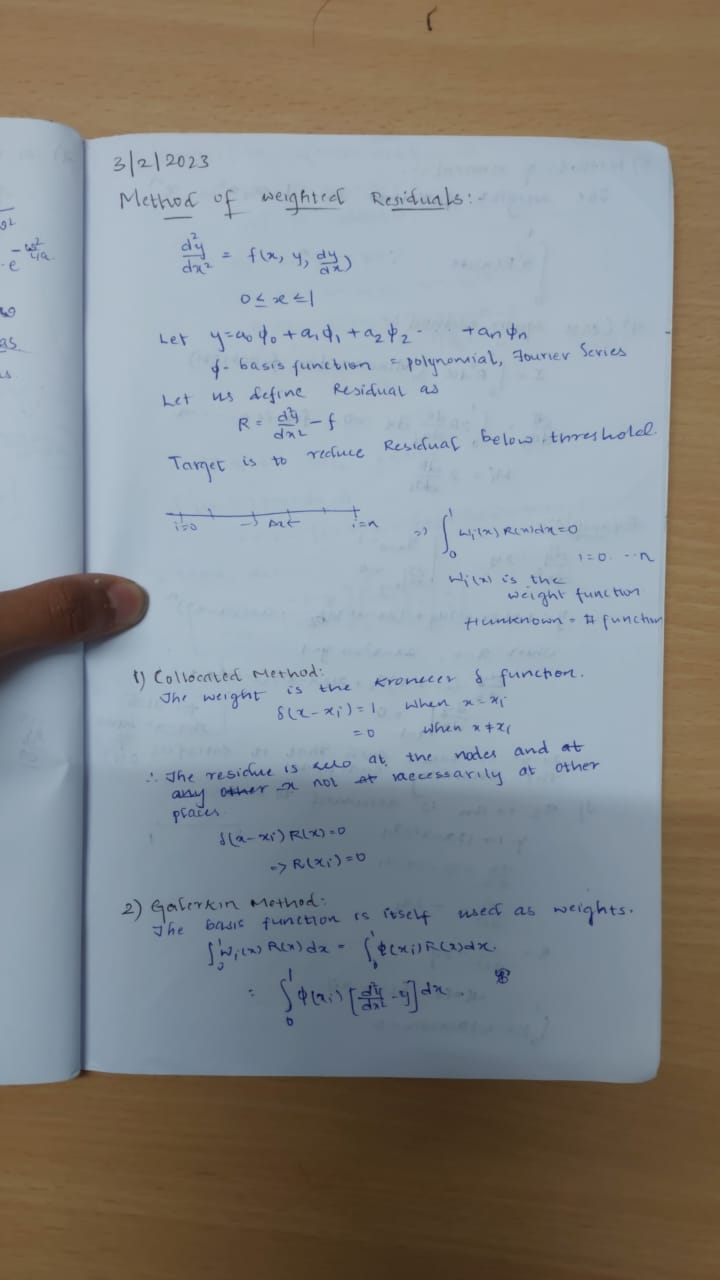 92
-e^-ω²/4a
as
3/2/2023
Method of weighted Residuals:-
d²y/dx² = f(x, y, dy/dx)
0 ≤ x ≤ 1
Let y = a₀ϕ₀ + a₁ϕ₁ + a₂ϕ₂ - - - + anϕn
ϕ- basis function = polynomial, Fourier Series
Let us define Residual as
R = d²y/dx² - f
Target is to reduce Residual below threshold.
i=0 → Δx← i=n
⇒ ∫₀¹ Wi(x) R(x)dx = 0
i=0. - - n
Wi(x) is the
weight function
#unknown = # function
1) Collocated Method:
The weight is the Kronecer δ function.
δ(x-xi) = 1 when x = xi
= 0 when x ≠ xi
∴ The residue is zero at the nodes and at
any other x not at neccessarily at other
places.
δ(x-xi) R(x) = 0
=> R(xi) = 0
2) Galerkin Method:
The basis function is itself used as weights.
∫₀¹ Wi(x) R(x) dx = ∫₀¹ ϕ(xi) R(x)dx.
= ∫₀¹ ϕ(xi) [d²y/dx² - y] dx.